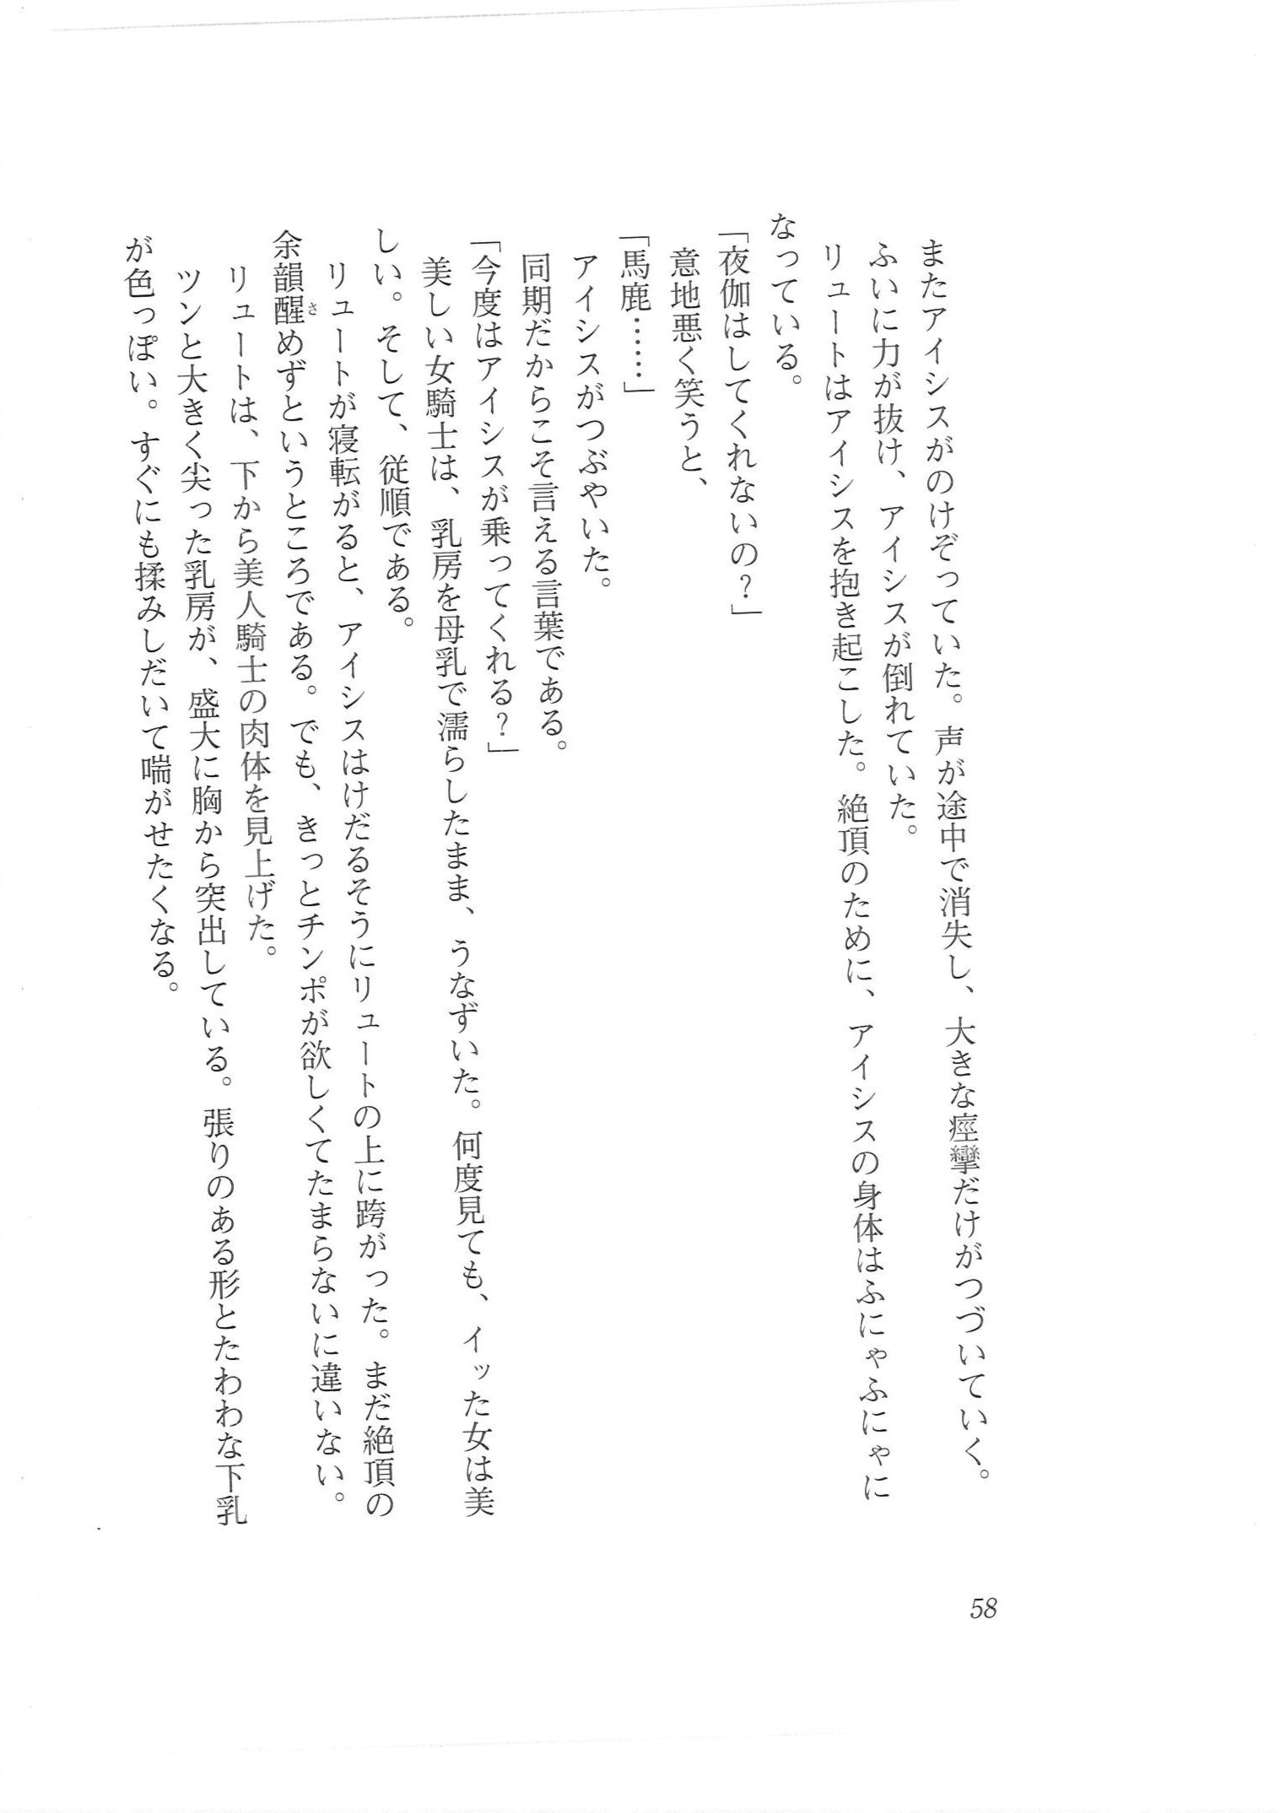 またアイシスがのけぞっていた。声が途中で消失し、大きな痙攣だけがつづいていく。
ふいに力が抜け、アイシスが倒れていた。
リュートはアイシスを抱き起こした。絶頂のために、アイシスの身体はふにゃふにゃに
なっている。
「夜伽はしてくれないの？」
意地悪く笑うと、
「馬鹿……」
アイシスがつぶやいた。
同期だからこそ言える言葉である。
「今度はアイシスが乗ってくれる？」
美しい女騎士は、乳房を母乳で濡らしたまま、うなずいた。何度見ても、イッた女は美
しい。そして、従順である。
リュートが寝転がると、アイシスはけだるそうにリュートの上に跨がった。まだ絶頂の
余韻醒めずというところである。でも、きっとチンポが欲しくてたまらないに違いない。
さ
リュートは、下から美人騎士の肉体を見上げた。
ツンと大きく尖った乳房が、盛大に胸から突出している。張りのある形とたわわな下乳
が色っぽい。すぐにも揉みしだいて喘がせたくなる。
58